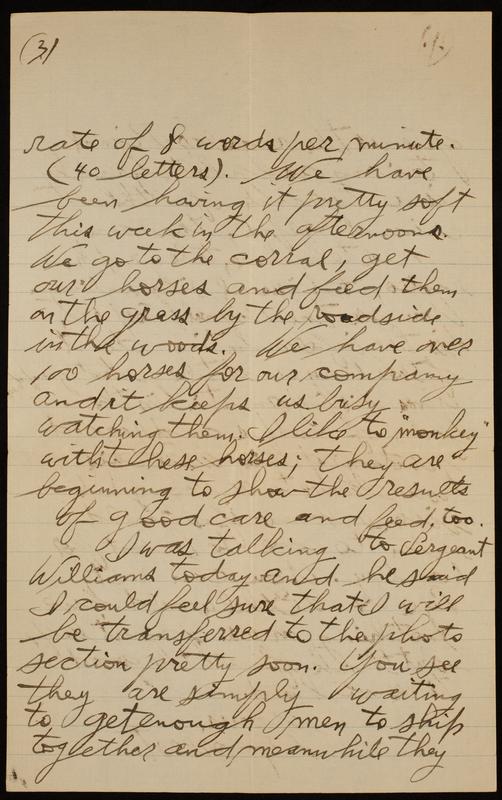 (3)
rate of 8 words per minute.
(40 letters). We have
been having it pretty soft
this week in the afternoons.
We go to the corral, get
our horses and feed them
on the grass by the roadside
in the woods. We have over
100 horses for our company
and it keeps us busy
watching them. I like to "monkey"
with these horses; they are
beginning to show the results
of good care and feed, too.
I was talking to Sergeant
Williams today and he said
I could feel sure that I will
be transferred to the photo
section pretty soon. You see
they are simply waiting
to get enough men to ship
together and meanwhile they